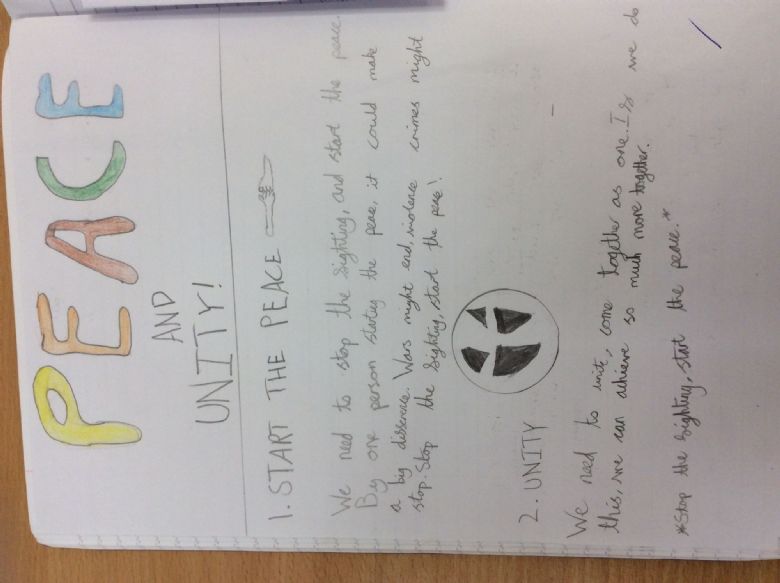 PEACE
AND
UNITY!
1. START THE PEACE
We need to stop the fighting, and start the peace.
By one person starting the peace, it could make
a by difference. Wars might end, violence crimes might
stop. Stop the fighting, start the peace!
2. UNITY
We need to unite, come together as one. If we do
this, we can achieve so much more together.
*Stop the fighting, start the peace.*